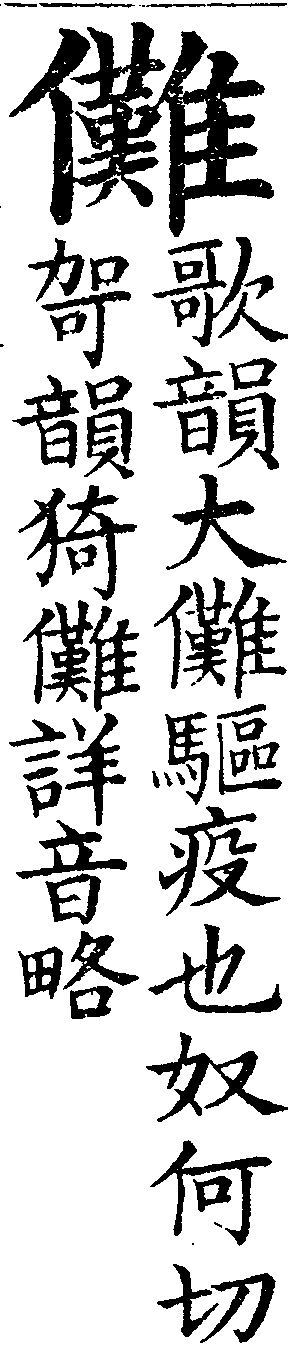 儺
歌韻大儺驅疫也奴何切
哿韻猗儺詳音略